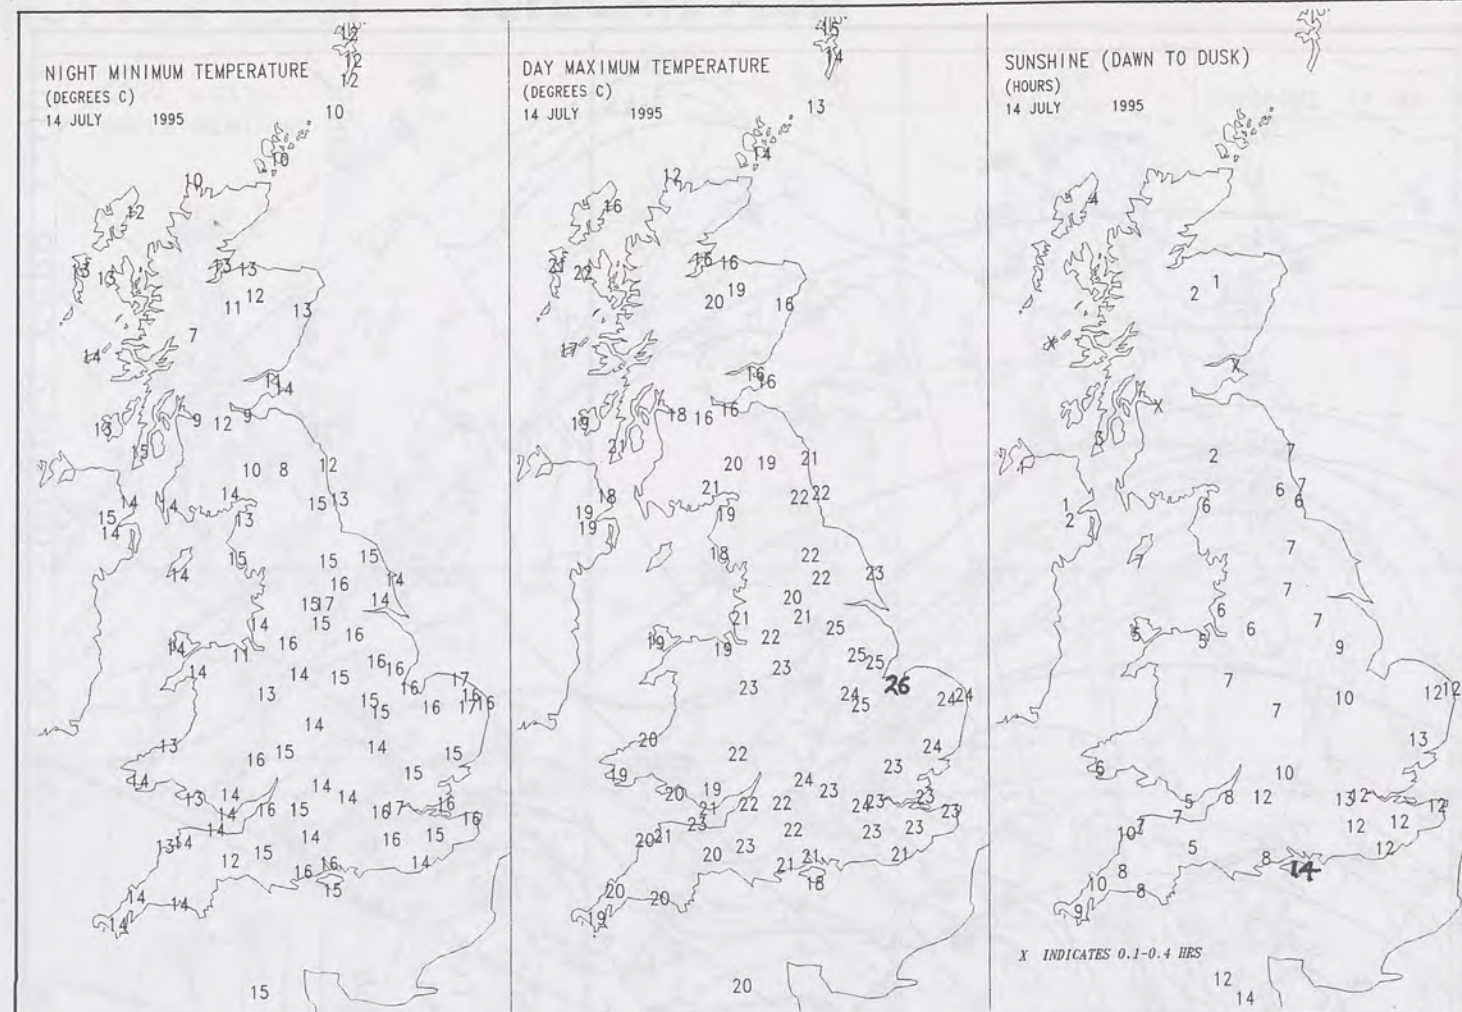 NIGHT MINIMUM TEMPERATURE
(DEGREES C)
14 JULY 1995
12
12
12
10
10
10
12
13 13
13 13
12
11 13
7
14
11
14
9 12 9
13
15
10 8 12
14
14 14 15 13
15 13
14
15 15 15
14 16 14
15 17 14
14 15
14 11 16 16
14 14 15 16 16 17
13 15 16 16
15 16 17 16
14
13 16 15 14 15
14 15
13 14 14 14
14 16 15 16 17 16
14 14 16 15 16
13 14 12 15
16 16 14
15
14 14
14
15
DAY MAXIMUM TEMPERATURE
(DEGREES C)
14 JULY 1995
15
14
13
14
12
16
21 22 16 16
19
20 16
17
16
16
18 16 16
19
21
20 19 21
21
18 22 22
19 19
19
18 22
22 23
20
21 21 25
19 19 22 25 25
23
23 26
24 24 24
25
20 22 24
19 24 23
20 19 23
21 22 22 24 23 23
23 22 23 23 23
20 21 20 23
21 21 21
18
20 20
19
20
SUNSHINE (DAWN TO DUSK)
(HOURS)
14 JULY 1995
4
1
2
X
X
X
3
2 7
1
6 7
1 6 6
2
7 7
7
6 7
5 5 6 9
7 10 12 12
7
13
6 10
5 8 12 13 12 12
7 12 12
10 7 5 8 12
14
8
10 8
9
X INDICATES 0.1-0.4 HRS
12
14